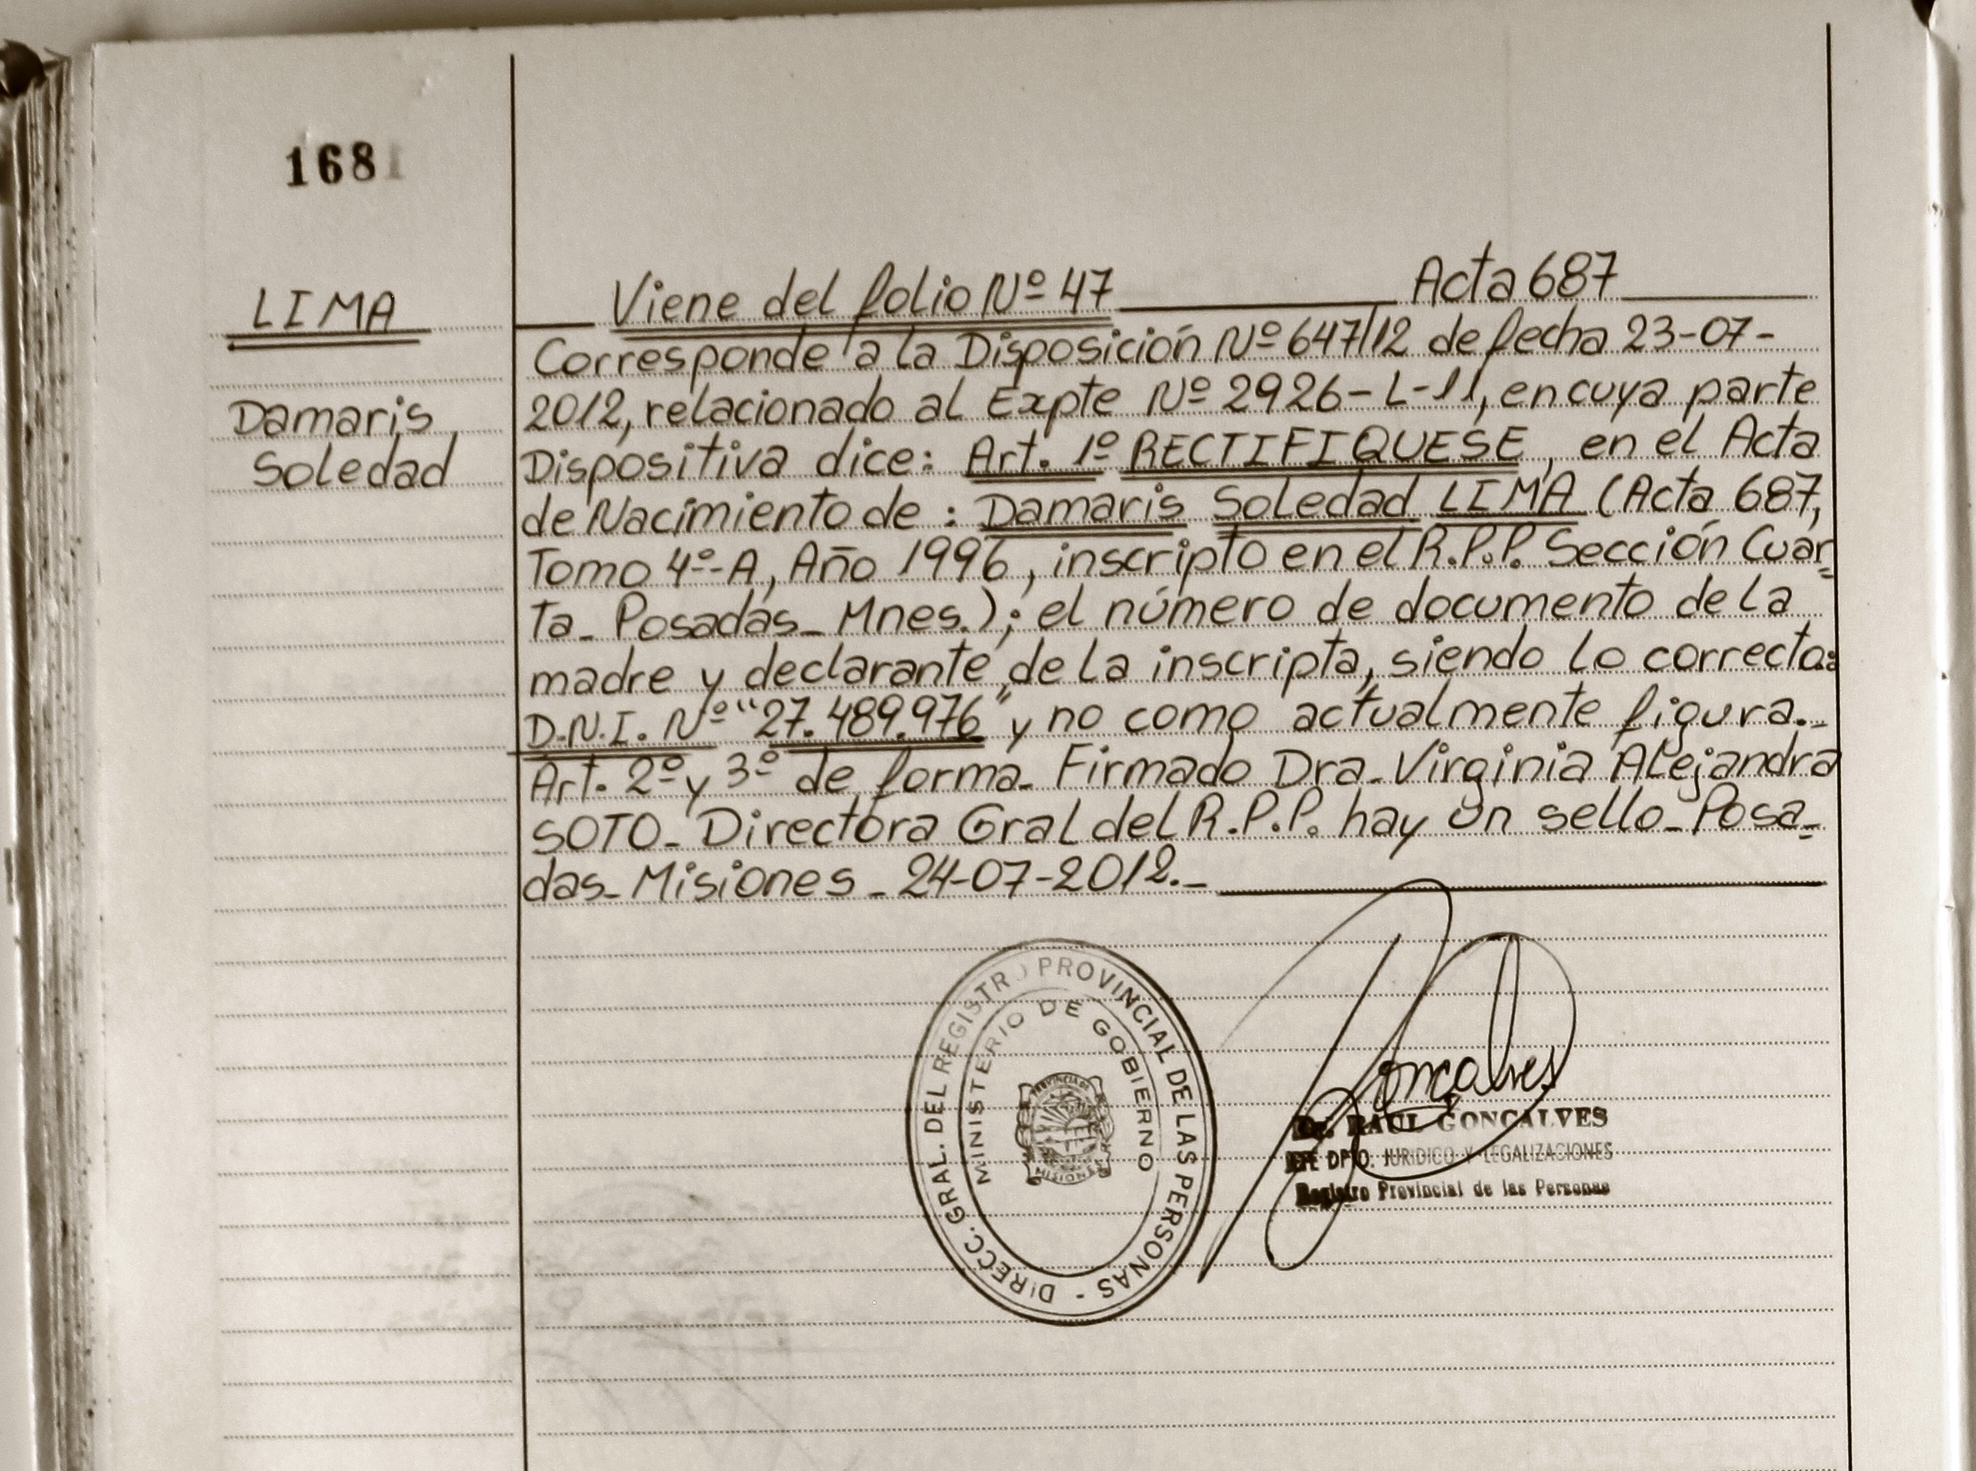 168
LIMA
Damaris
Soledad
Viene del folio Nº 47 Acta 687
Corresponde a la Disposición Nº 647/12 de fecha 23-07-
2012, relacionado al Expte Nº 2926-L-11, en cuya parte
Dispositiva dice: Art. 1º RECTIFIQUESE, en el Acta
de Nacimiento de: Damaris Soledad LIMA (Acta 687,
Tomo 4º-A, Año 1996, inscripto en el R.P.P. Sección Cuar-
ta_ Posadas_ Mnes.); el número de documento de la
madre y declarante de la inscripta, siendo lo correcto:
D.N.I. Nº "27.489.976" y no como actualmente figura._
Art. 2º y 3º de forma_ Firmado Dra_ Virginia Alejandra
SOTO_ Directora Gral del R.P.P. hay un sello_ Posa-
das_ Misiones_ 24-07-2012._
DIRECC. GRAL. DEL REGISTRO PROVINCIAL DE LAS PERSONAS -
MINISTERIO DE GOBIERNO
PROVINCIA DE
MISIONES
Gonçalves
Dr. RAUL GONCALVES
JEFE DPTO. JURIDICO Y LEGALIZACIONES
Registro Provincial de las Personas